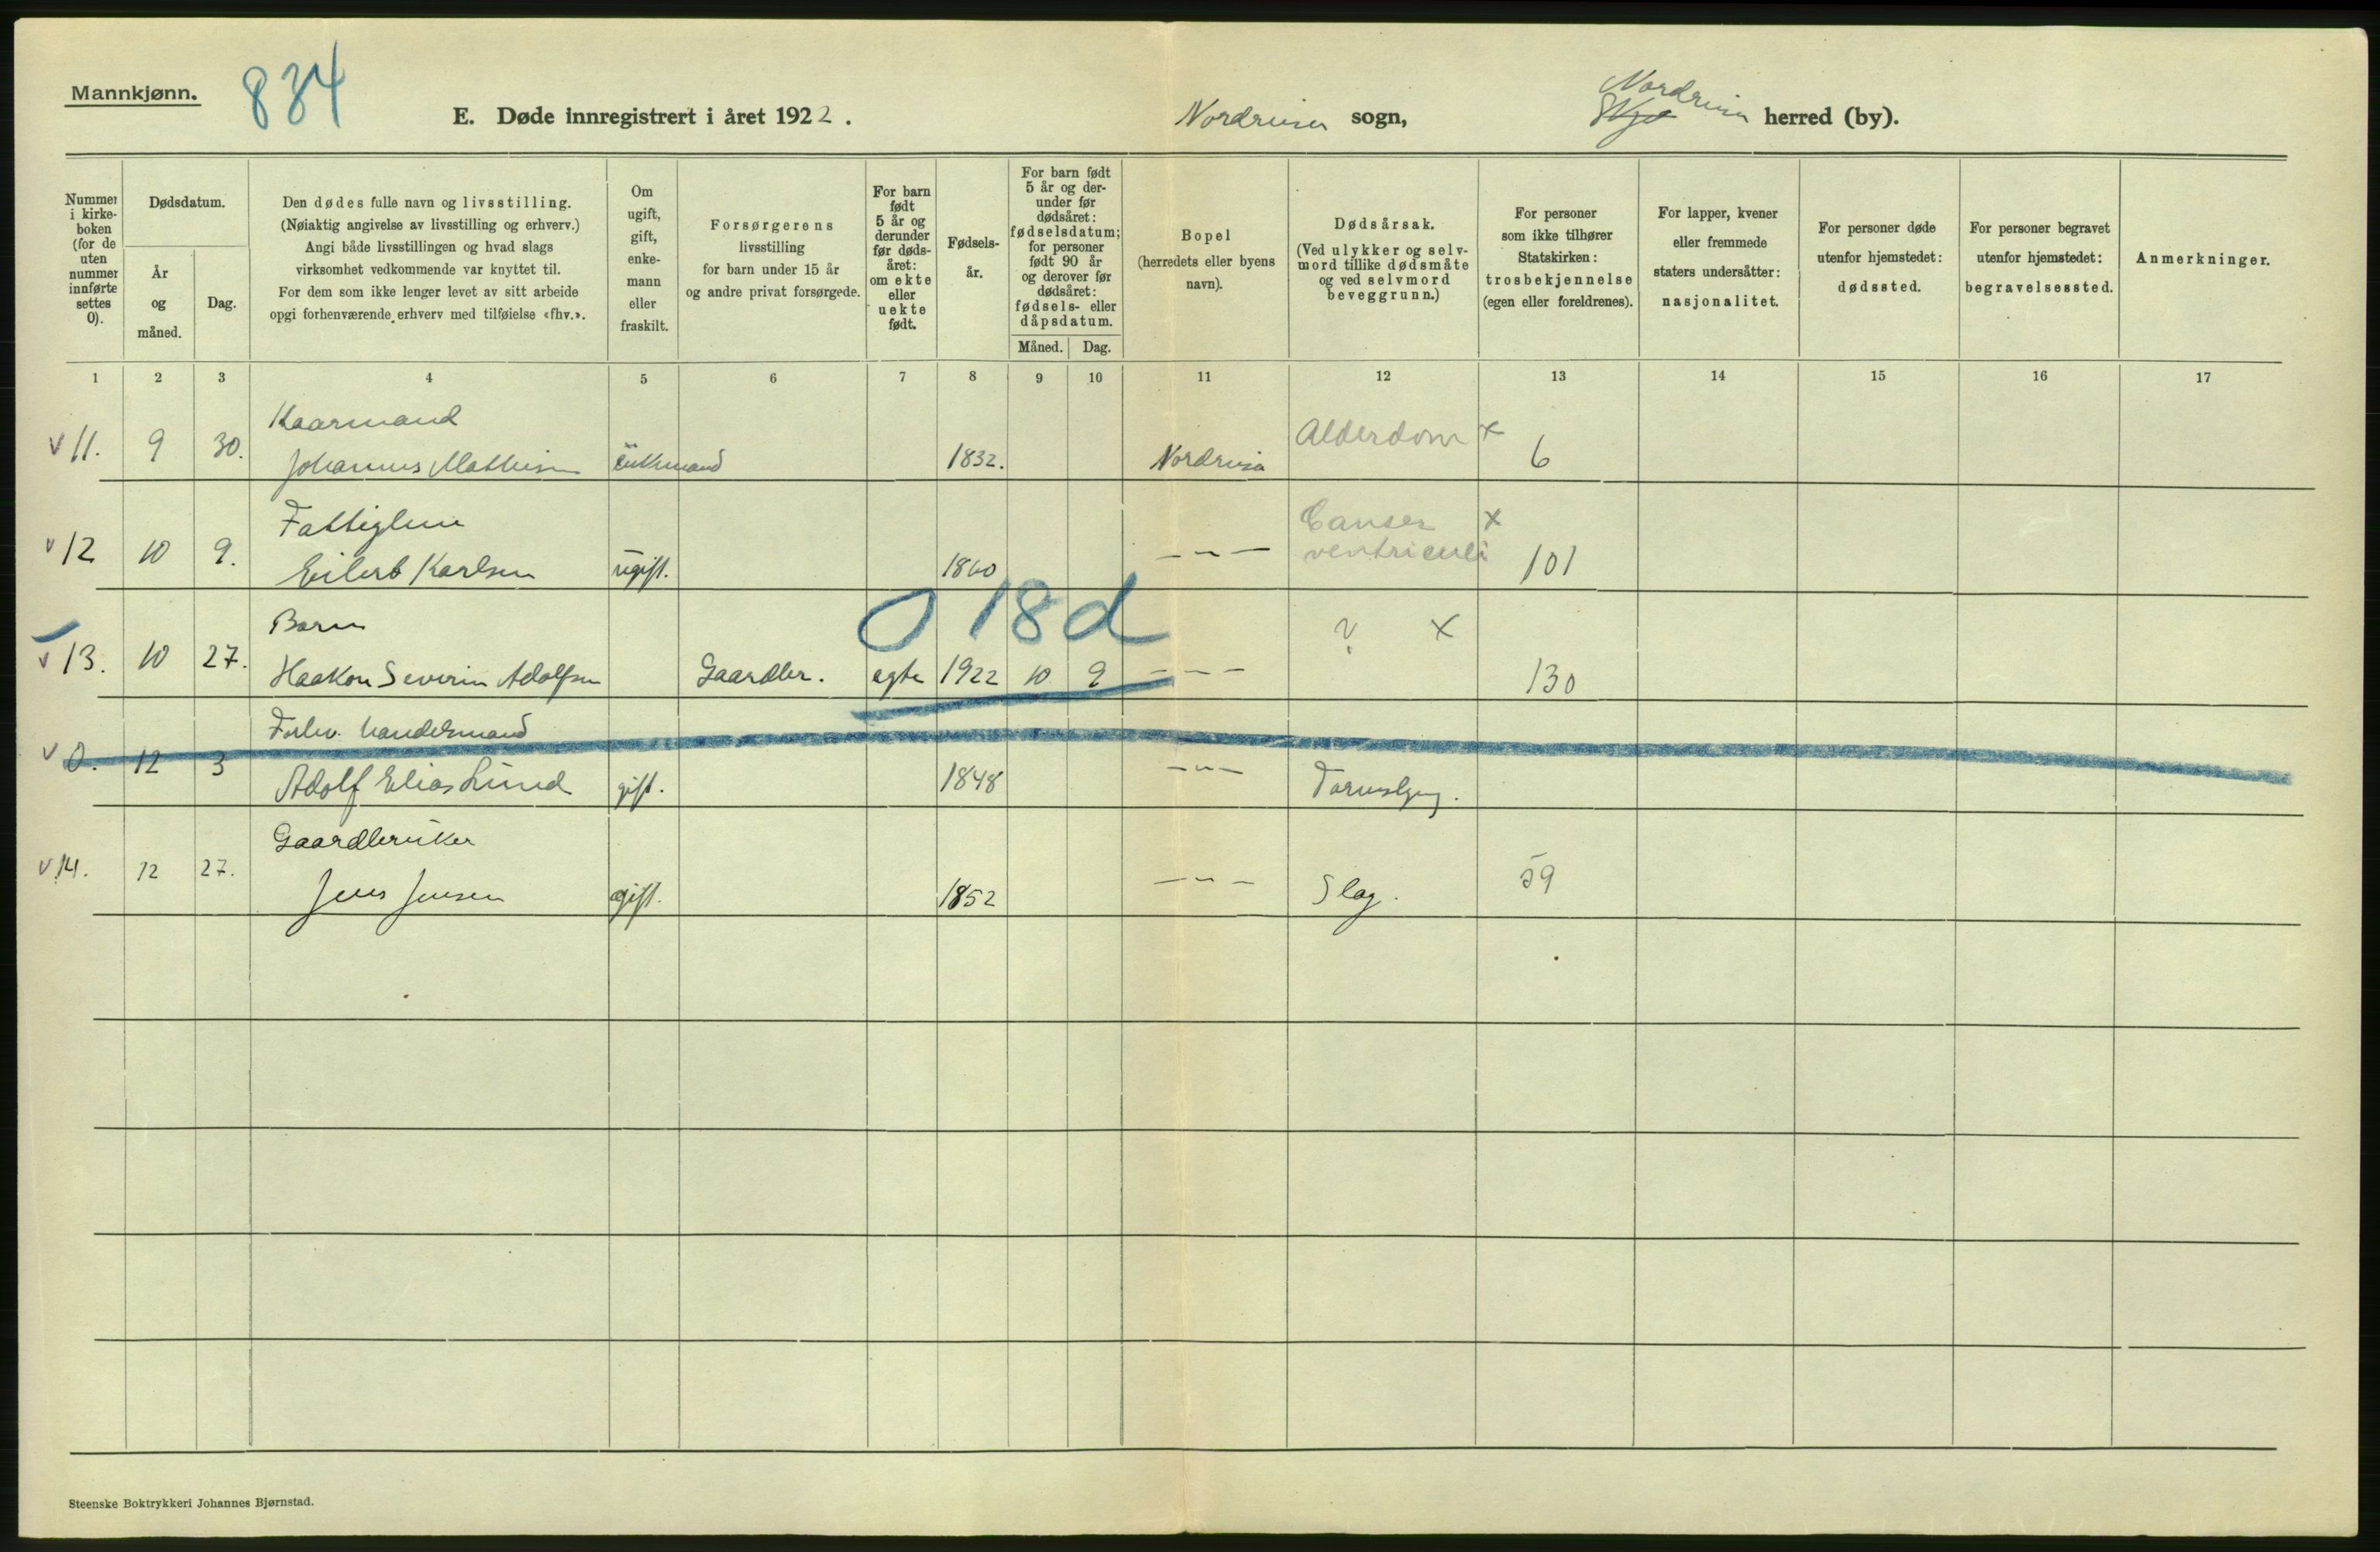 Mannkjønn.
834
E. Døde innregistrert i året 1922.
Nordreisa sogn,
Nordreisa herred (by).
Nummer i kirke-boken (for de uten nummer innførte settes 0).
Dødsdatum.
År og måned.
Dag.
Den dødes fulle navn og livsstilling.
(Nøiaktig angivelse av livsstilling og erhverv.)
Angi både livsstillingen og hvad slags
virksomhet vedkommende var knyttet til.
For dem som ikke lenger levet av sitt arbeide
opgi forhenværende erhverv med tilføielse «fhv.».
Om ugift, gift, enke-mann eller fraskilt.
Forsørgerens
livsstilling
for barn under 15 år
og andre privat forsørgede.
For barn født 5 år og derunder før døds-året: om ekte eller uekte født.
Fødsels-år.
For barn født 5 år og der-under før dødsåret: fødselsdatum; for personer født 90 år og derover før dødsåret: fødsels- eller dåpsdatum.
Måned.
Dag.
Bopel
(herredets eller byens navn).
Dødsårsak.
(Ved ulykker og selv-mord tillike dødsmåte og ved selvmord beveggrunn.)
For personer
som ikke tilhører
Statskirken:
trosbekjennelse
(egen eller foreldrenes).
For lapper, kvener
eller fremmede
staters undersåtter:
nasjonalitet.
For personer døde
utenfor hjemstedet:
dødssted.
For personer begravet
utenfor hjemstedet:
begravelsessted.
Anmerkninger.
1 2 3 4 5 6 7 8 9 10 11 12 13 14 15 16 17
Kaarmand
v 11. 9 30. Johannes Mathisen enkemand 1832. Nordreisa Alderdom x 6
Fattiglem
v 12 10 9. Eilert Karlsen ugift. 1860 - " - Canser x
ventriculi 101
0 18 d
Barn
v 13. 10 27. Haakon Severin Adolfsen Gaardbr. egte 1922 10 9 - " - ? x 130
Forhv. handelsmand
v 0. 12 3 Adolf Elias Lund gift. 1848 - " -
Gaardbruker
v 14. 12 27. Jens Jensen gift. 1852 - " - Slag. 59
Steenske Boktrykkeri Johannes Bjørnstad.